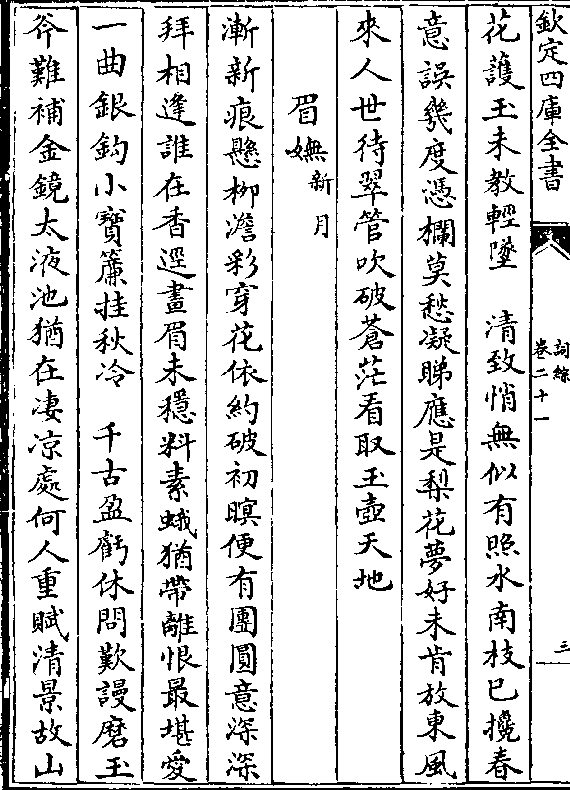 欽定四庫全書
詞綜
卷二十一
三
花護玉未教輕墜　清致悄無似有照水南枝已攙春
意誤幾度憑欄莫愁凝睇應是梨花夢好未肯放東風
來人世待翠管吹破蒼茫看取玉壺天地
眉嫵新月
漸新痕懸柳澹彩穿花依約破初暝便有團圓意深深
拜相逢誰在香逕畫眉未穩料素蛾猶帶離恨最堪愛
一曲銀鈎小寶簾挂秋冷　千古盈虧休問歎謾磨玉
斧難補金鏡太液池猶在凄凉處何人重賦清景故山